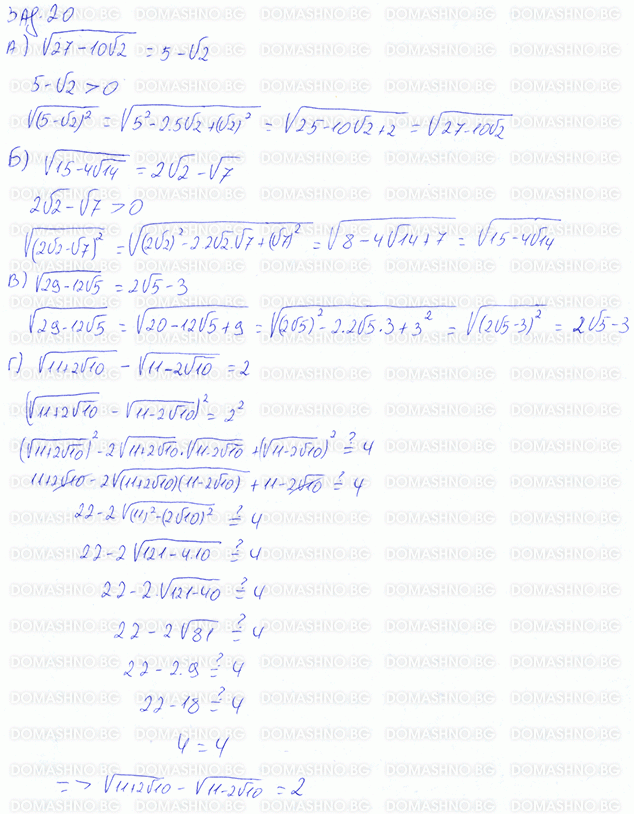 Зад. 20
А) √(27-10√2) = 5-√2
5-√2 > 0
√((5-√2)²) = √(5²-2.5√2+(√2)²) = √(25-10√2+2) = √(27-10√2)
Б) √(15-4√14) = 2√2-√7
2√2-√7 > 0
√((2√2-√7)²) = √((2√2)²-2.2√2.√7+(√7)²) = √(8-4√14+7) = √(15-4√14)
В) √(29-12√5) = 2√5-3
√(29-12√5) = √(20-12√5+9) = √((2√5)²-2.2√5.3+3²) = √((2√5-3)²) = 2√5-3
Г) √(11+2√10) - √(11-2√10) = 2
(√(11+2√10) - √(11-2√10))² = 2²
(√(11+2√10))² - 2√(11+2√10).√(11-2√10) + (√(11-2√10))² ?= 4
11+2√10 - 2√((11+2√10)(11-2√10)) + 11-2√10 ?= 4
22-2√((11)²-(2√10)²) ?= 4
22-2√(121-4.10) ?= 4
22-2.√(121-40) ?= 4
22-2√81 ?= 4
22-2.9 ?= 4
22-18 ?= 4
4 = 4
=> √(11+2√10) - √(11-2√10) = 2
DOMASHNO.BG